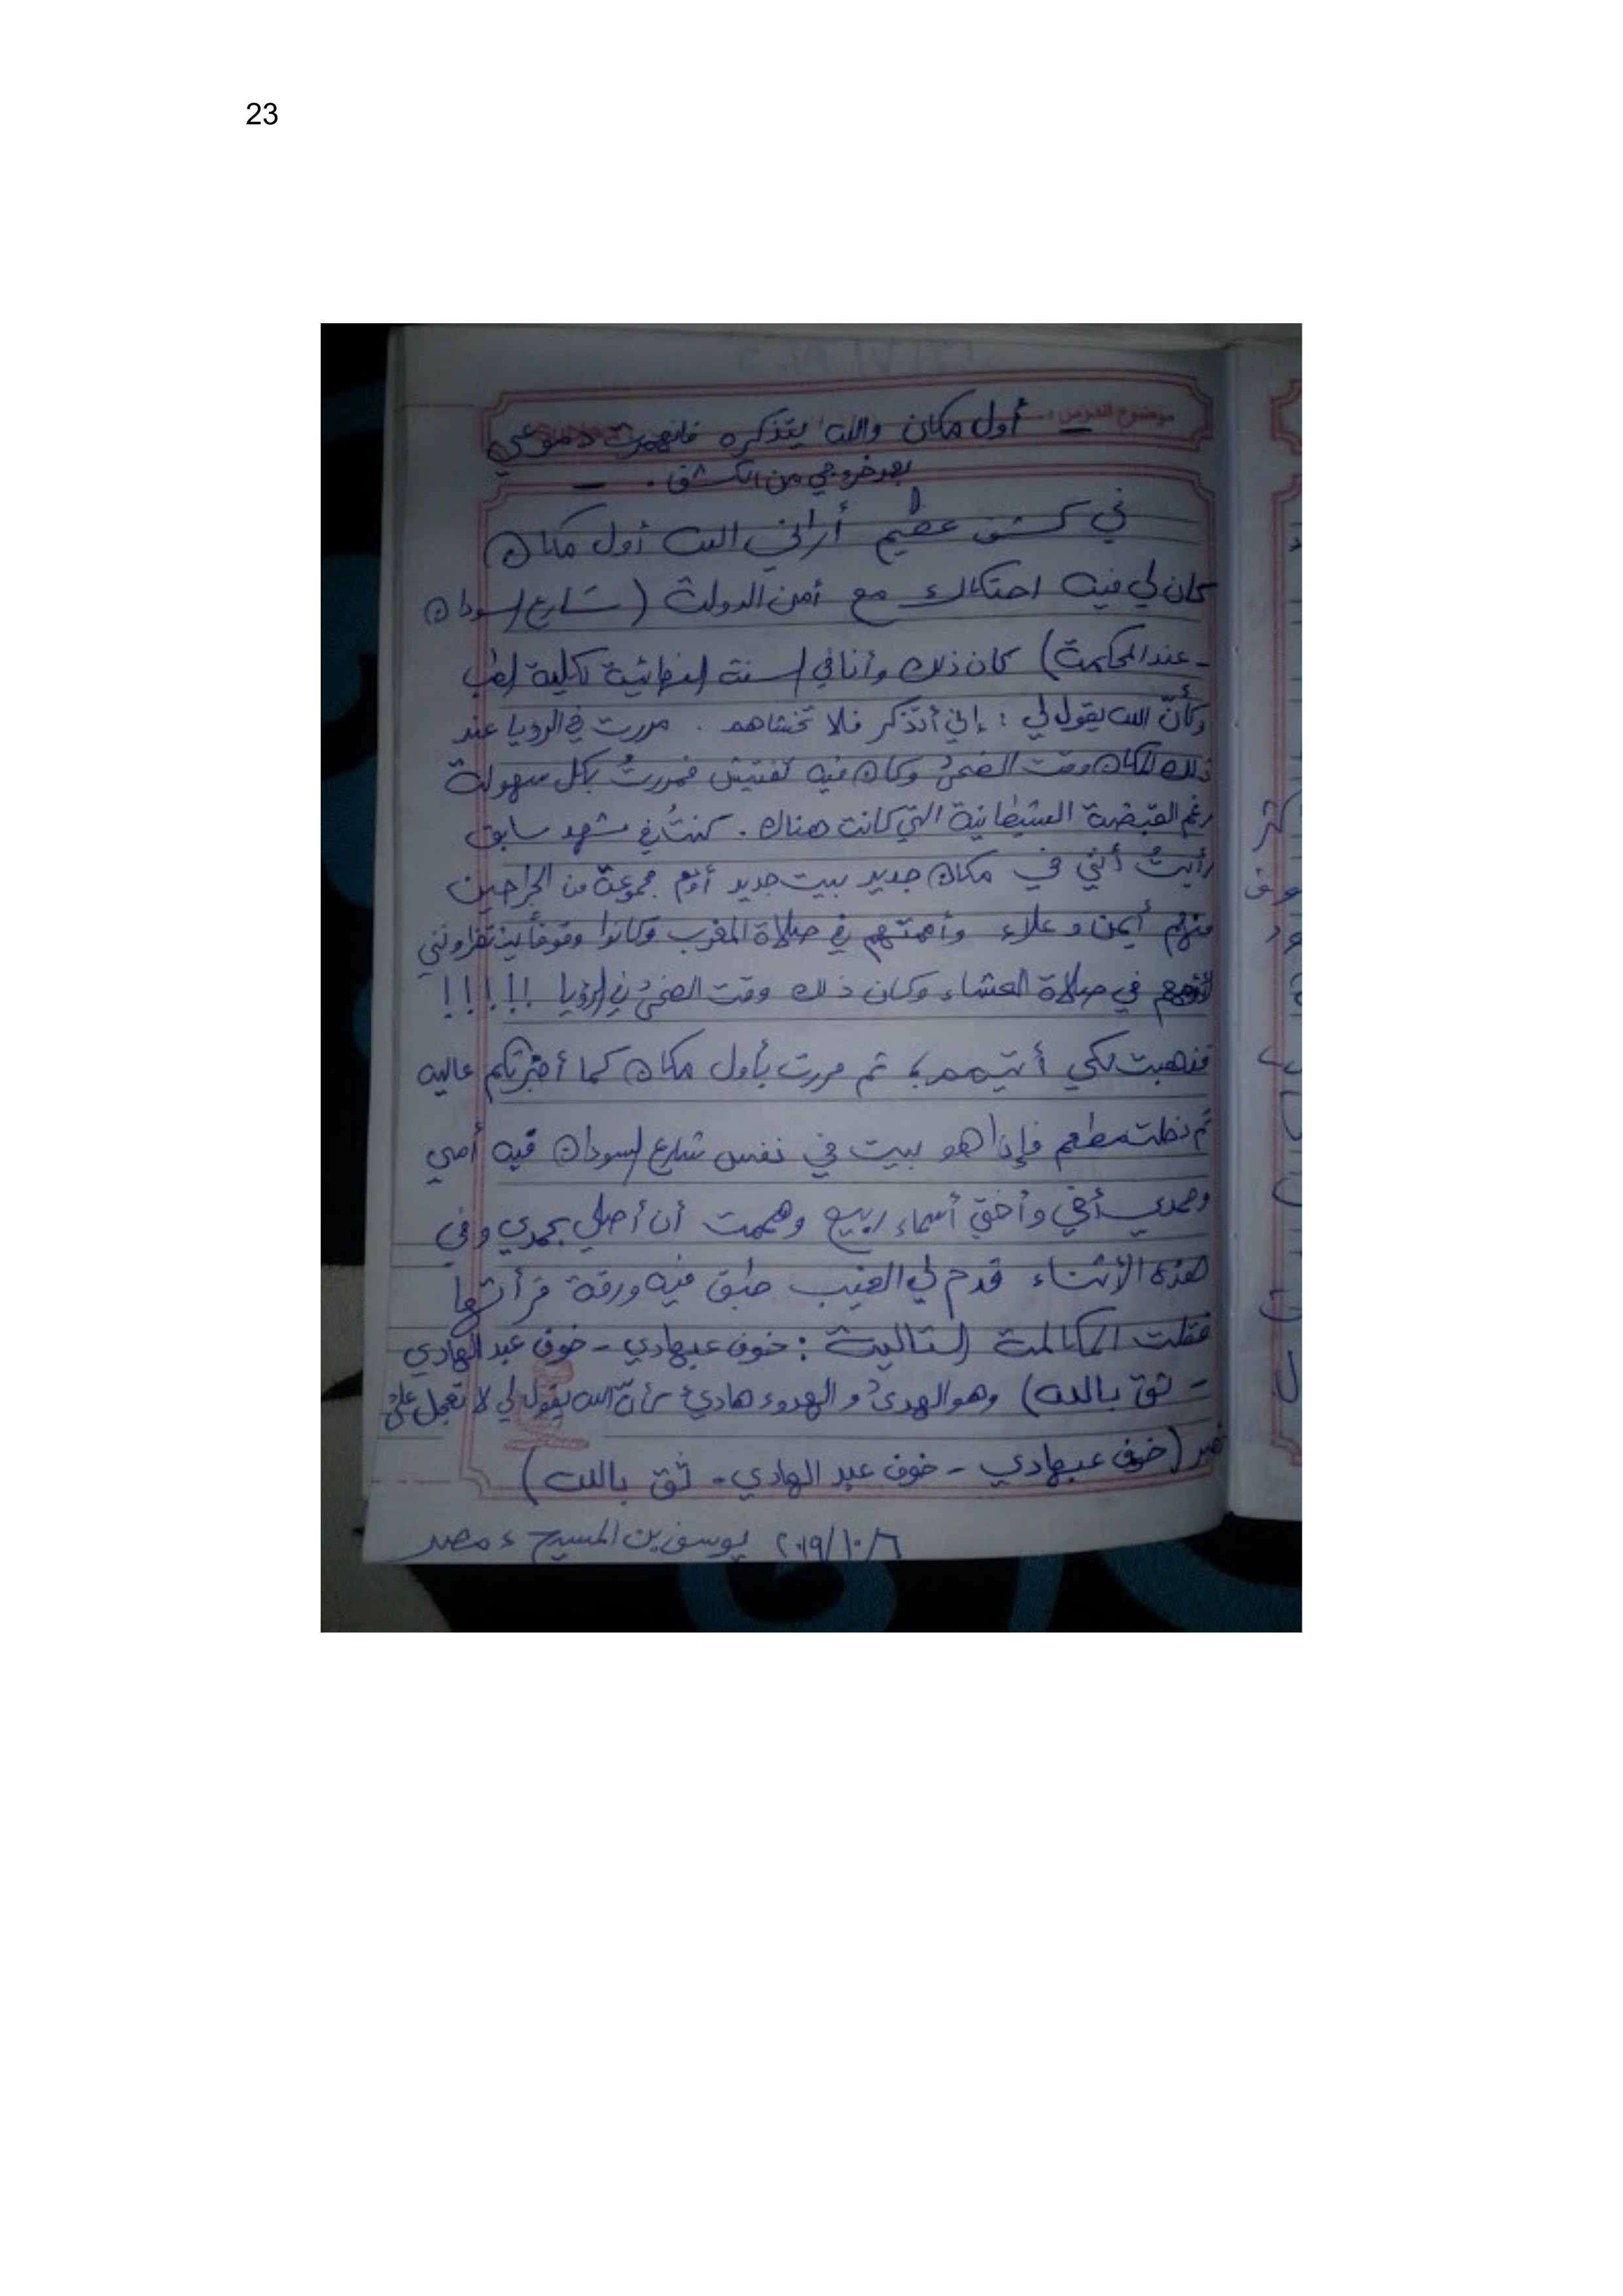 23
موضوع الدرس :
ـ أول مكان والله يتذكره فانهمرت دموعي
بعد خروجي من الكشف . ـ
في كشف عظيم أراني الله أول مكان
كان لي فيه احتكاك مع أمن الدولة ( شارع السودان
- عند المحكمة ) كان ذلك وأنا في السنة النهائية لكلية الطب
وكأنّ الله يقول لي : إني أتذكر فلا تخشاهم . مررت في الرويا عند
ذلك المكان وقت الضحىٰ وكان فيه تفتيش فمررتُ بكل سهولة
رغم القبضة الشيطانية التي كانت هناك . كنتُ في مشهد سابق
رأيتُ أنني في مكان جديد بيت جديد أؤم مجموعة من الجراحين
منهم أيمن و علاء وأممتهم في صلاة المغرب وكانوا وقوفاً ينتظرونني
في صلاة العشاء وكان ذلك وقت الضحىٰ في الرؤيا !!!!!
فذهبت لكي ثم مررت بأول مكان كما أخبرتكم عاليه
ثم دخلت مطعم فإذا هو بيت في نفس شارع السودان فيه أمي
وحمدي أخي وأختي أسماء ربيع وهممت أن أصلي بحمدي وفي
هذه الأثناء قدم لي الغيب طبق فيه ورقة قرأتها
فقلت المكالمة التالية : خوف عبهادي - خوف عبد الهادي
- ثق بالله ) وهو الهدىٰ و الهدوء هادئ كأنّ الله يقول لي لا تعجل علىٰ
( خوف عبهادي - خوف عبد الهادي - ثق بالله )
٢٠١٩/١٠/٦ يوسف بن المسيح ، مصر